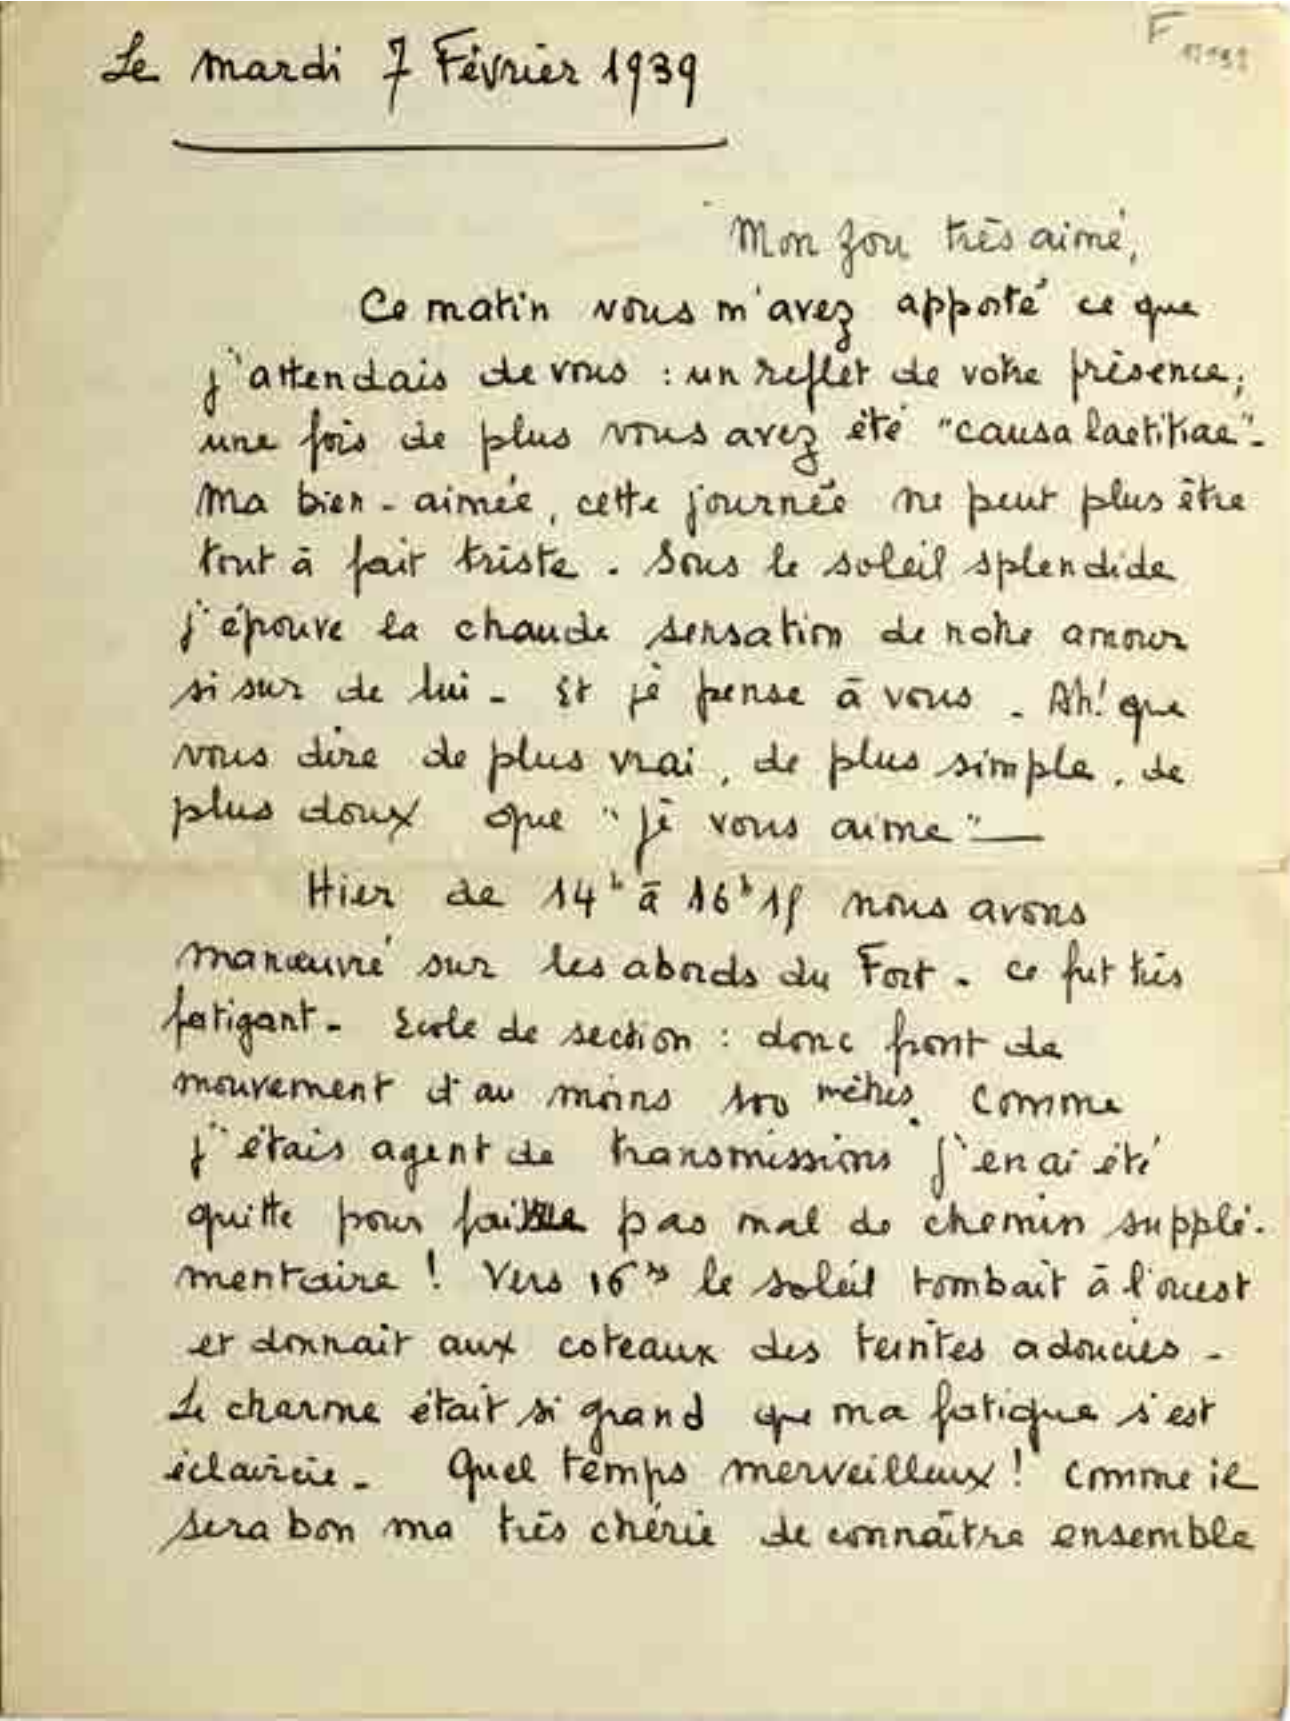 F
Le mardi 7 Février 1939
Mon fou très aimé,
Ce matin vous m'avez apporté ce que
j'attendais de vous : un reflet de votre présence,
une fois de plus vous avez été "causa laetitiae".
Ma bien-aimée, cette journée ne peut plus être
tout à fait triste. Sous le soleil splendide
j'épouve la chaude sensation de notre amour
si sur de lui - Et je pense à vous. Ah! que
vous dire de plus vrai, de plus simple, de
plus doux que "je vous aime" —
Hier de 14h à 16h15 nous avons
manœuvré sur les abords du Fort - ce fut très
fatigant - Ecole de section : donc front de
mouvement d'au moins 100 mètres. Comme
j'étais agent de transmissions j'en ai été
quitte pour faire pas mal de chemin supplé-
mentaire ! Vers 16hs le soleil tombait à l'ouest
et donnait aux coteaux des teintes adoucies -
Le charme était si grand que ma fatigue s'est
éclaircie - Quel temps merveilleux ! Comme il
sera bon ma très chérie de connaître ensemble